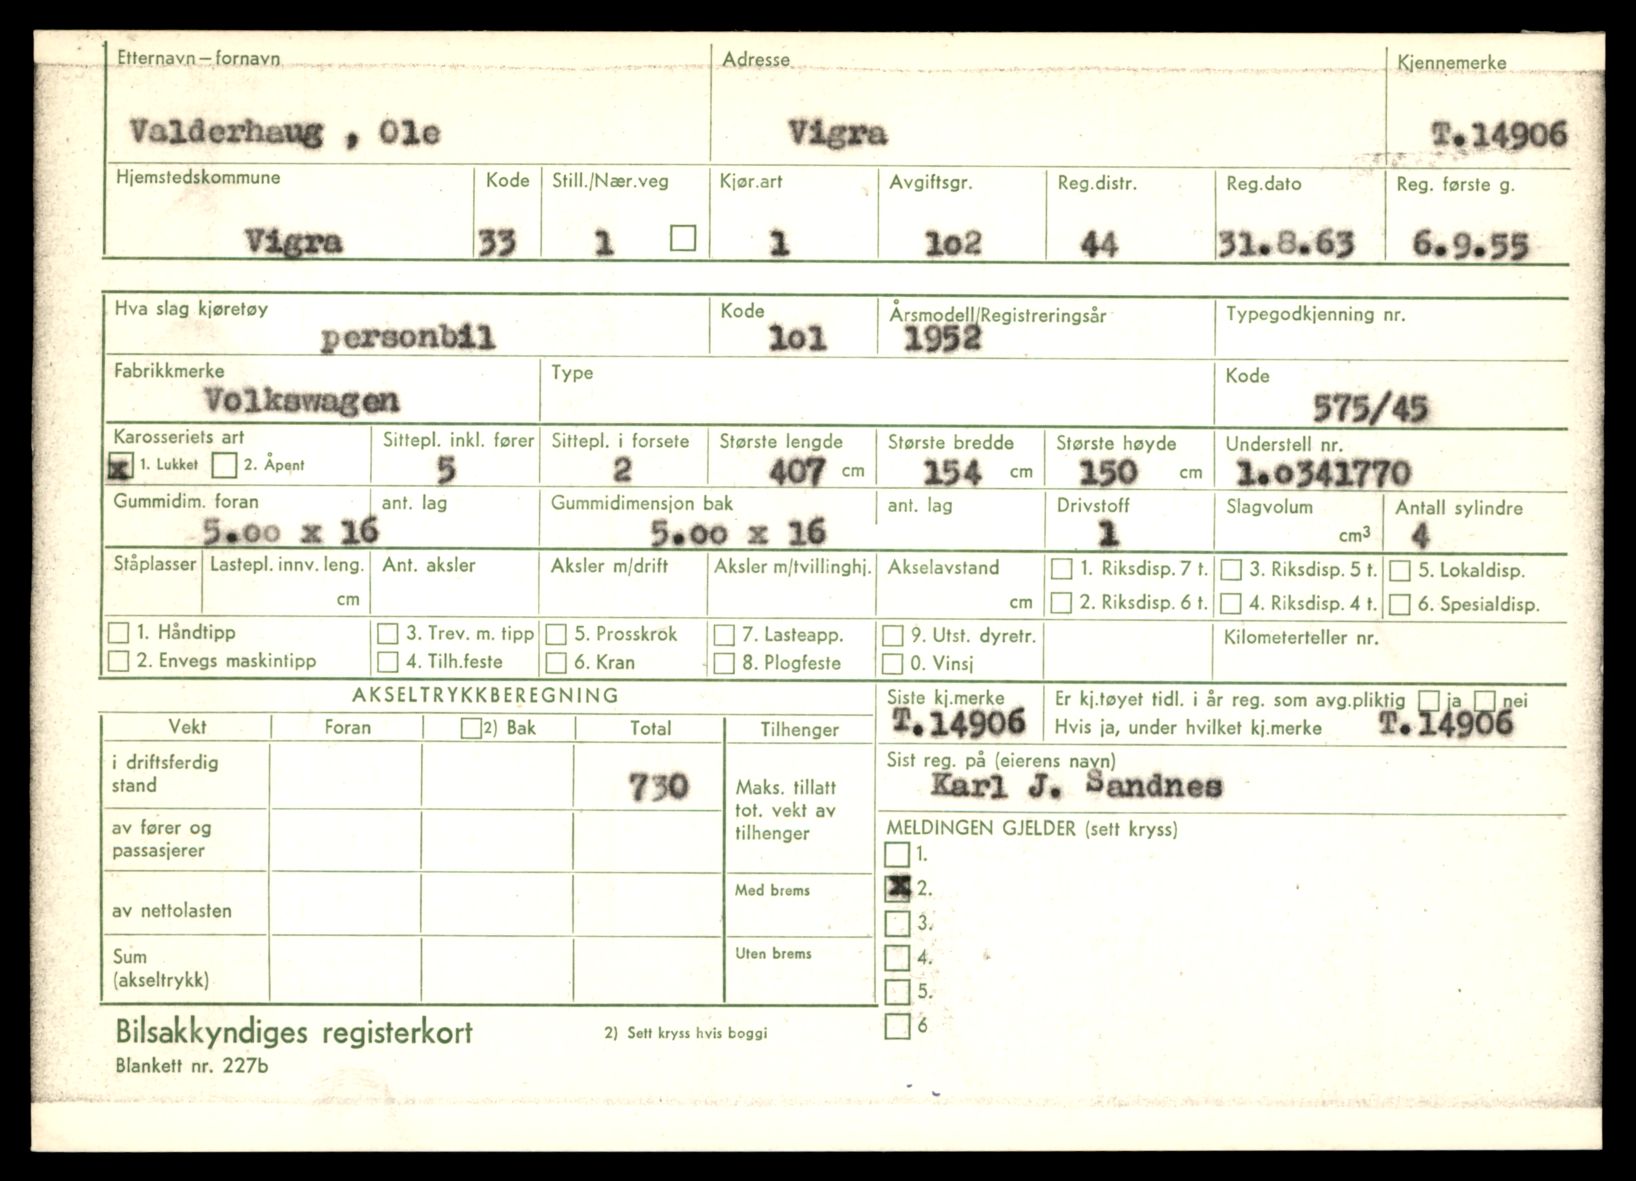 Etternavn – fornavn Adresse Kjennemerke
Valderhaug , Ole Vigra T.14906
Hjemstedskommune Kode Still./Nær.veg Kjør.art Avgiftsgr. Reg.distr. Reg.dato Reg. første g.
Vigra 33 1 1 lo2 44 31.8.63 6.9.55
Hva slag kjøretøy Kode Årsmodell/Registreringsår Typegodkjenning nr.
personbil lol 1952
Fabrikkmerke Type Kode
Volkswagen 575/45
Karosseriets art Sittepl. inkl. fører Sittepl. i forsete Største lengde Største bredde Største høyde Understell nr.
x 1. Lukket 2. Åpent 5 2 407 cm 154 cm 150 cm 1.o341770
Gummidim. foran ant. lag Gummidimensjon bak ant. lag Drivstoff Slagvolum Antall sylindre
5.oo x 16 5.oo x 16 1 cm3 4
Ståplasser Lastepl. innv. leng. Ant. aksler Aksler m/drift Aksler m/tvillinghj. Akselavstand 1. Riksdisp. 7 t. 3. Riksdisp. 5 t. 5. Lokaldisp.
cm cm 2. Riksdisp. 6 t. 4. Riksdisp. 4 t. 6. Spesialdisp.
1. Håndtipp 3. Trev. m. tipp 5. Prosskrok 7. Lasteapp. 9. Utst. dyretr. Kilometerteller nr.
2. Envegs maskintipp 4. Tilh.feste 6. Kran 8. Plogfeste 0. Vinsj
AKSELTRYKKBEREGNING Siste kj.merke Er kj.tøyet tidl. i år reg. som avg.pliktig ja nei
T.14906 Hvis ja, under hvilket kj.merke T.14906
Vekt Foran 2) Bak Total Tilhenger
Sist reg. på (eierens navn)
Karl J. Sandnes
i driftsferdig
stand 730 Maks. tillatt
tot. vekt av
tilhenger
av fører og
passasjerer
MELDINGEN GJELDER (sett kryss)
1.
x 2.
3.
4.
5.
6
av nettolasten Med brems
Sum
(akseltrykk) Uten brems
Bilsakkyndiges registerkort 2) Sett kryss hvis boggi
Blankett nr. 227b